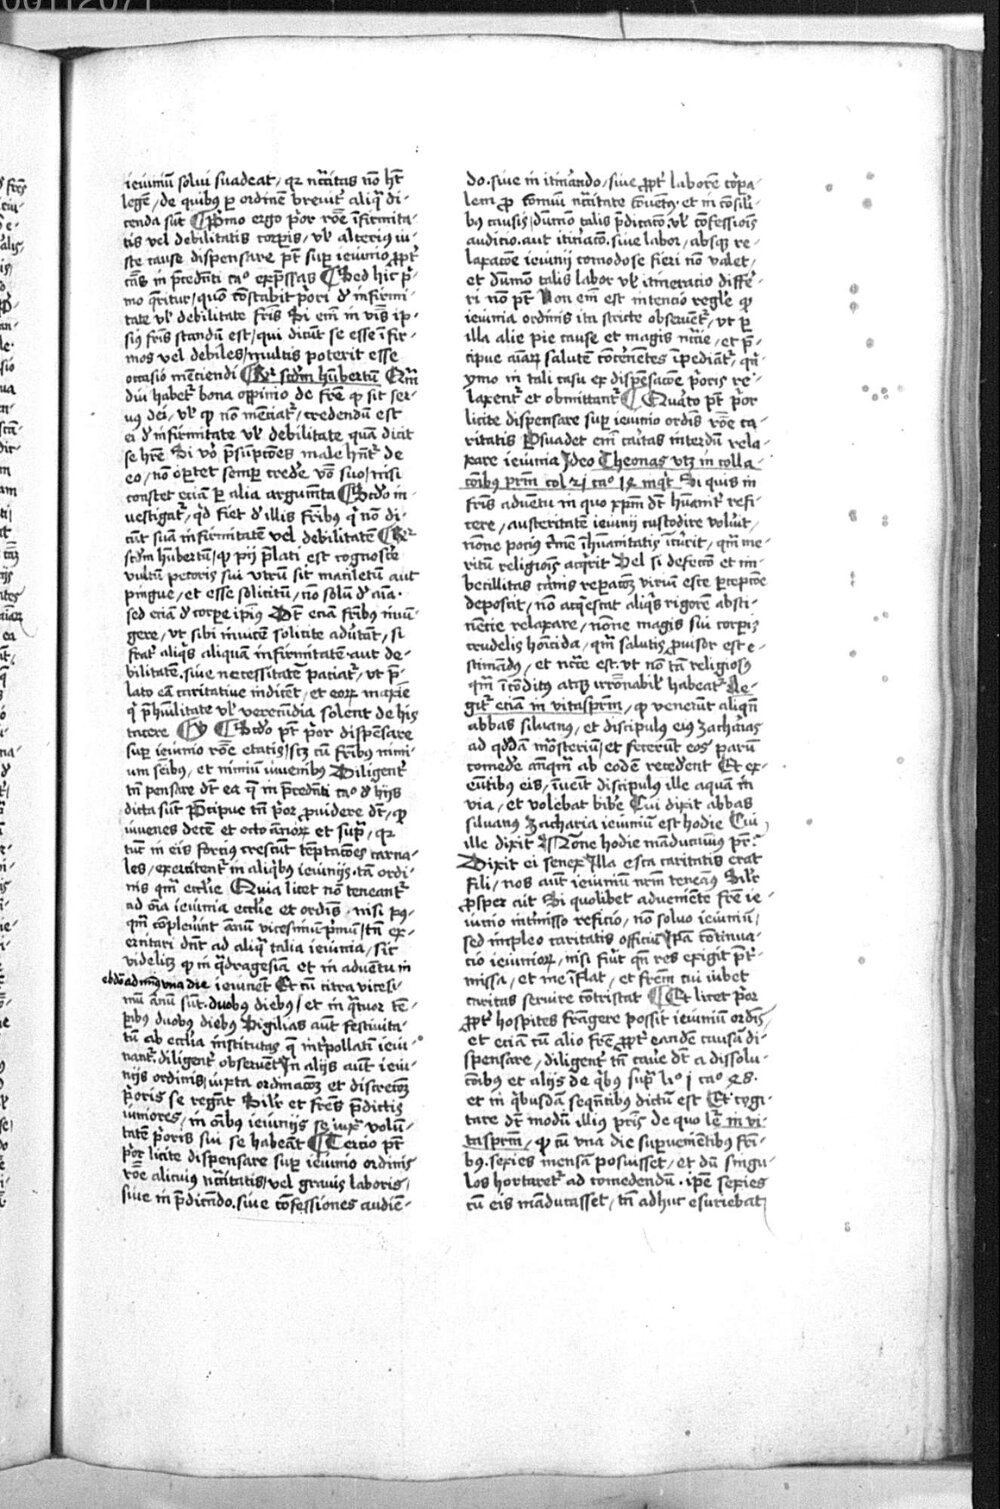 ieiuniū solui suadeat / qr ncc̄itas nō hēt
legē / de quibus ꝑ ordinē breuit̄ aliq̄ di-
cenda sūt ¶ Pͥmo ergo pͥor rōe īfirmita-
tis vel debilitatis corꝑis / vl̄ alterius iu-
ste cause dispensare pt̄ suꝑ ieiunio ꝓpt̄
cās in p̄cedn̄ti caº exp̄ssas ¶ Sed hic pͥ-
mo q̄ritur / quō cōstabit pͥori de infirmi-
tate vl̄ debilitate fr̄is Si em̄ in v̄bis ip-
sius fr̄is standū est / qui dicūt se esse īfir-
mos vel debiles / multis poterit esse
occasio mēciendi ¶ Rͬ scdm hūbertū Qm̄
diu habet̄ bona oppinio de fr̄e ꝙ sit ser-
uus dei / vl̄ ꝙ nō mēciat̄ / credendū est
ei de infirmitate vl̄ debilitate quā dicit
se hr̄e Si vō p̄supcōes male hn̄t̄ de
eo / nō oꝑtet semꝑ crede vō suo / nisi
constet eciā ꝑ alia argumēta ¶ Scd̄o in-
vestigat̄ / qd̄ fiet de illis fr̄ibus qͥ nō di-
cūt suā infirmitatē vel debilitatē ¶ Rͬ
scdm hūbertū / ꝙ pij p̄lati est cognosc̄e
vultū pecoris sui vtrū sit macilētū aut
pingue / et esse solicitū / nō solū de aīa ·
sed eciā de corꝑe ip̄ius Dt̄ eciā fr̄ibus iniū-
gere / vt sibi inuicē solicite adūtāt / si
frat̄ aliqͥs aliquam infirmitatē aut de-
bilitatē · siue necessitatē paciat̄ / vt p̄-
lato eā caritatiue indicēt / et eorꝝ maxīe
qͥ p̄ hūilitate vl̄ verecūdia solent de his
tacere ¶ Scd̄o pt̄ pͥor dispēsare
suꝑ ieiunio rōe etatis / scꝫ cū fr̄ibus nimi-
um senibus / et nimiū iuuenibus Diligent̄
tn̄ pensare dt̄ ea q̄ in p̄cedn̄ti caº de hijs
dicta sūt P̄cipue tn̄ pͥor ꝓuidere dt̄ / ꝙ
iuuenes decē et octo ānorꝝ et sup̄ / qr
tūc in eis forcius crescūt tēptacōes carna-
les / exercitent̄ in aliqͥbus ieiunijs · tā ordi-
nis qm̄ ecclīe Quia licet nō teneant̄
ad oīa ieiunia ecclīe et ordīs · nisi pꝰ-
qm̄ cōpleuīnt annū vicesimū pͥmū / tn̄ ex-
ercitari dn̄t ad aliq̄ talia ieiunia / sic
videlicꝫ ꝙ in q̄dragesīa et in aduētu in
ebdōada vna die ieiunēt Et cū citra vicesi-
mū ānū sūt · duobus diebus / et in q̄tuor tē-
ꝑibus duobus diebus Vigilias aūt festiuita-
tū ab ecclīa institutas q̄ int̄pollatī ieiu-
nant̄ · diligent̄ obseruēt In alijs aūt ieiu-
nijs ordinis / iuxta ordinacōꝫ et discrecōꝫ
pͥoris se regāt Silr̄ et fr̄es p̄dictis
iuniores / in oībus ieiunijs se iuxͣ volū-
tatē pͥoris sui se habeāt ¶ Tercio pt̄
pͥor licite dispensare suꝑ ieiunio ordinis
rōe alicuius ncc̄itatis / vel grauis laboris /
siue in p̄dicādo · siue cōfessiones audiē-
do · siue in itinādo / siue ꝓpt̄ laborē corꝑa-
lem ꝓ comuni ncc̄itate cōuentꝰ / et in cōsili-
bus causis / dūmō talis p̄dicatō · vl̄ cōfessiois
auditio · aut itinacō · siue labor / absqꝫ re-
laxacōe ieiunij comodose fieri nō valet /
et dūmō talis labor vl̄ itineracio diffe-
ri nō pt̄ Non em̄ est intencio regl̄e ꝙ
ieiunia ordinis ita stricte obseruēt̄ / vt ꝑ
illa alie pie cause et magis ncc̄ie / et p̄-
cipue aīarꝝ salutē cōcernētes īpediāt̄ / qn̄
ymo in tali casu ex dispēsacōe pͥoris re-
laxent̄ et obmittant̄ ¶ Quarto pt̄ pͥor
licite dispensare suꝑ ieiunio ordīs rōe ca-
ritatis Psuadet em̄ cāitas interdū rela-
xare ieiunia Ideo Theonas vtꝫ in colla-
cōibus pr̄m col 21 caº 14 inqt̄ Si quis in
fr̄is aduentu in quo xp̄m dt̄ hūanit̄ refi-
cere / austeritatē ieiunij custodire voluīt /
nōne pocius crimē īhūanitatis īcurrit / qm̄ me-
ritū religiois acqͥrit Vel si defectō et im-
becillitas carnis reparacōꝫ viriū esce ꝑcepcōe
deposcit / nō acqͥescat aliqͥs rigorē absti-
nēcie relaxare / nōne magis sui corꝑis
crudelis homicida / qm̄ salutis ꝓuisor est e-
stimādus / et ncc̄e est vt nō tā religiosus
qm̄ īcōditus atqꝫ irrōnabil̄ habeat̄ Le-
git̄ eciam in vitaspr̄m / ꝙ venerūt aliqn̄
abbas siluanus / et discipulus eius Zacharias
ad qd̄dā mōsteriū / et fecerūt eos parū
comedere anteqm̄ ab eodē recederent Et ex-
euntibus eis / īuenit discipulus ille aquā in
via / et volebat bibere Cui dixit abbas
siluanus Zacharia ieiuniū est hodie Cui
ille dixit Nōne hodie māducauimus pr̄
Dixit ei senex Illa esca caritatis erat
fili / nos aūt ieiuniū nr̄m teneam̄ꝰ Silr̄
ꝓsper ait Si quolibet adueniēte fr̄e ie-
iunio int̄misso reficio / nō soluo ieiuniū /
sed impleo caritatis officiū Ip̄a cōtinua-
cio ieiuniorꝝ / nisi fūit qn̄ res exigit p̄t̄-
missa / et me īflat / et fr̄em cui iubet
caritas seruire cōtristat ¶ Et licet pͥor
ꝓpt̄ hospites frāngere possit ieiuniū ordīs /
et eciā cū alio fr̄e ꝓpt̄ eandē causā di-
spensare / diligent̄ tn̄ cauē dt̄ a dissolu-
cōibus et alijs de qͥbus supͣ lº j caº 28 ·
et in qͥbusdā seqn̄tibus dictū est Et cogi-
tare dt̄ modū illius pr̄is de quo leͥ in vi-
taspr̄m / ꝙ cū vna die suꝑuenīetibus fr̄i-
bus · sexies mensā posuisset / et dū singu-
los hortaret̄ ad comedendū · ip̄e sexies
cū eis māducasset / tn̄ adhuc esuriebat